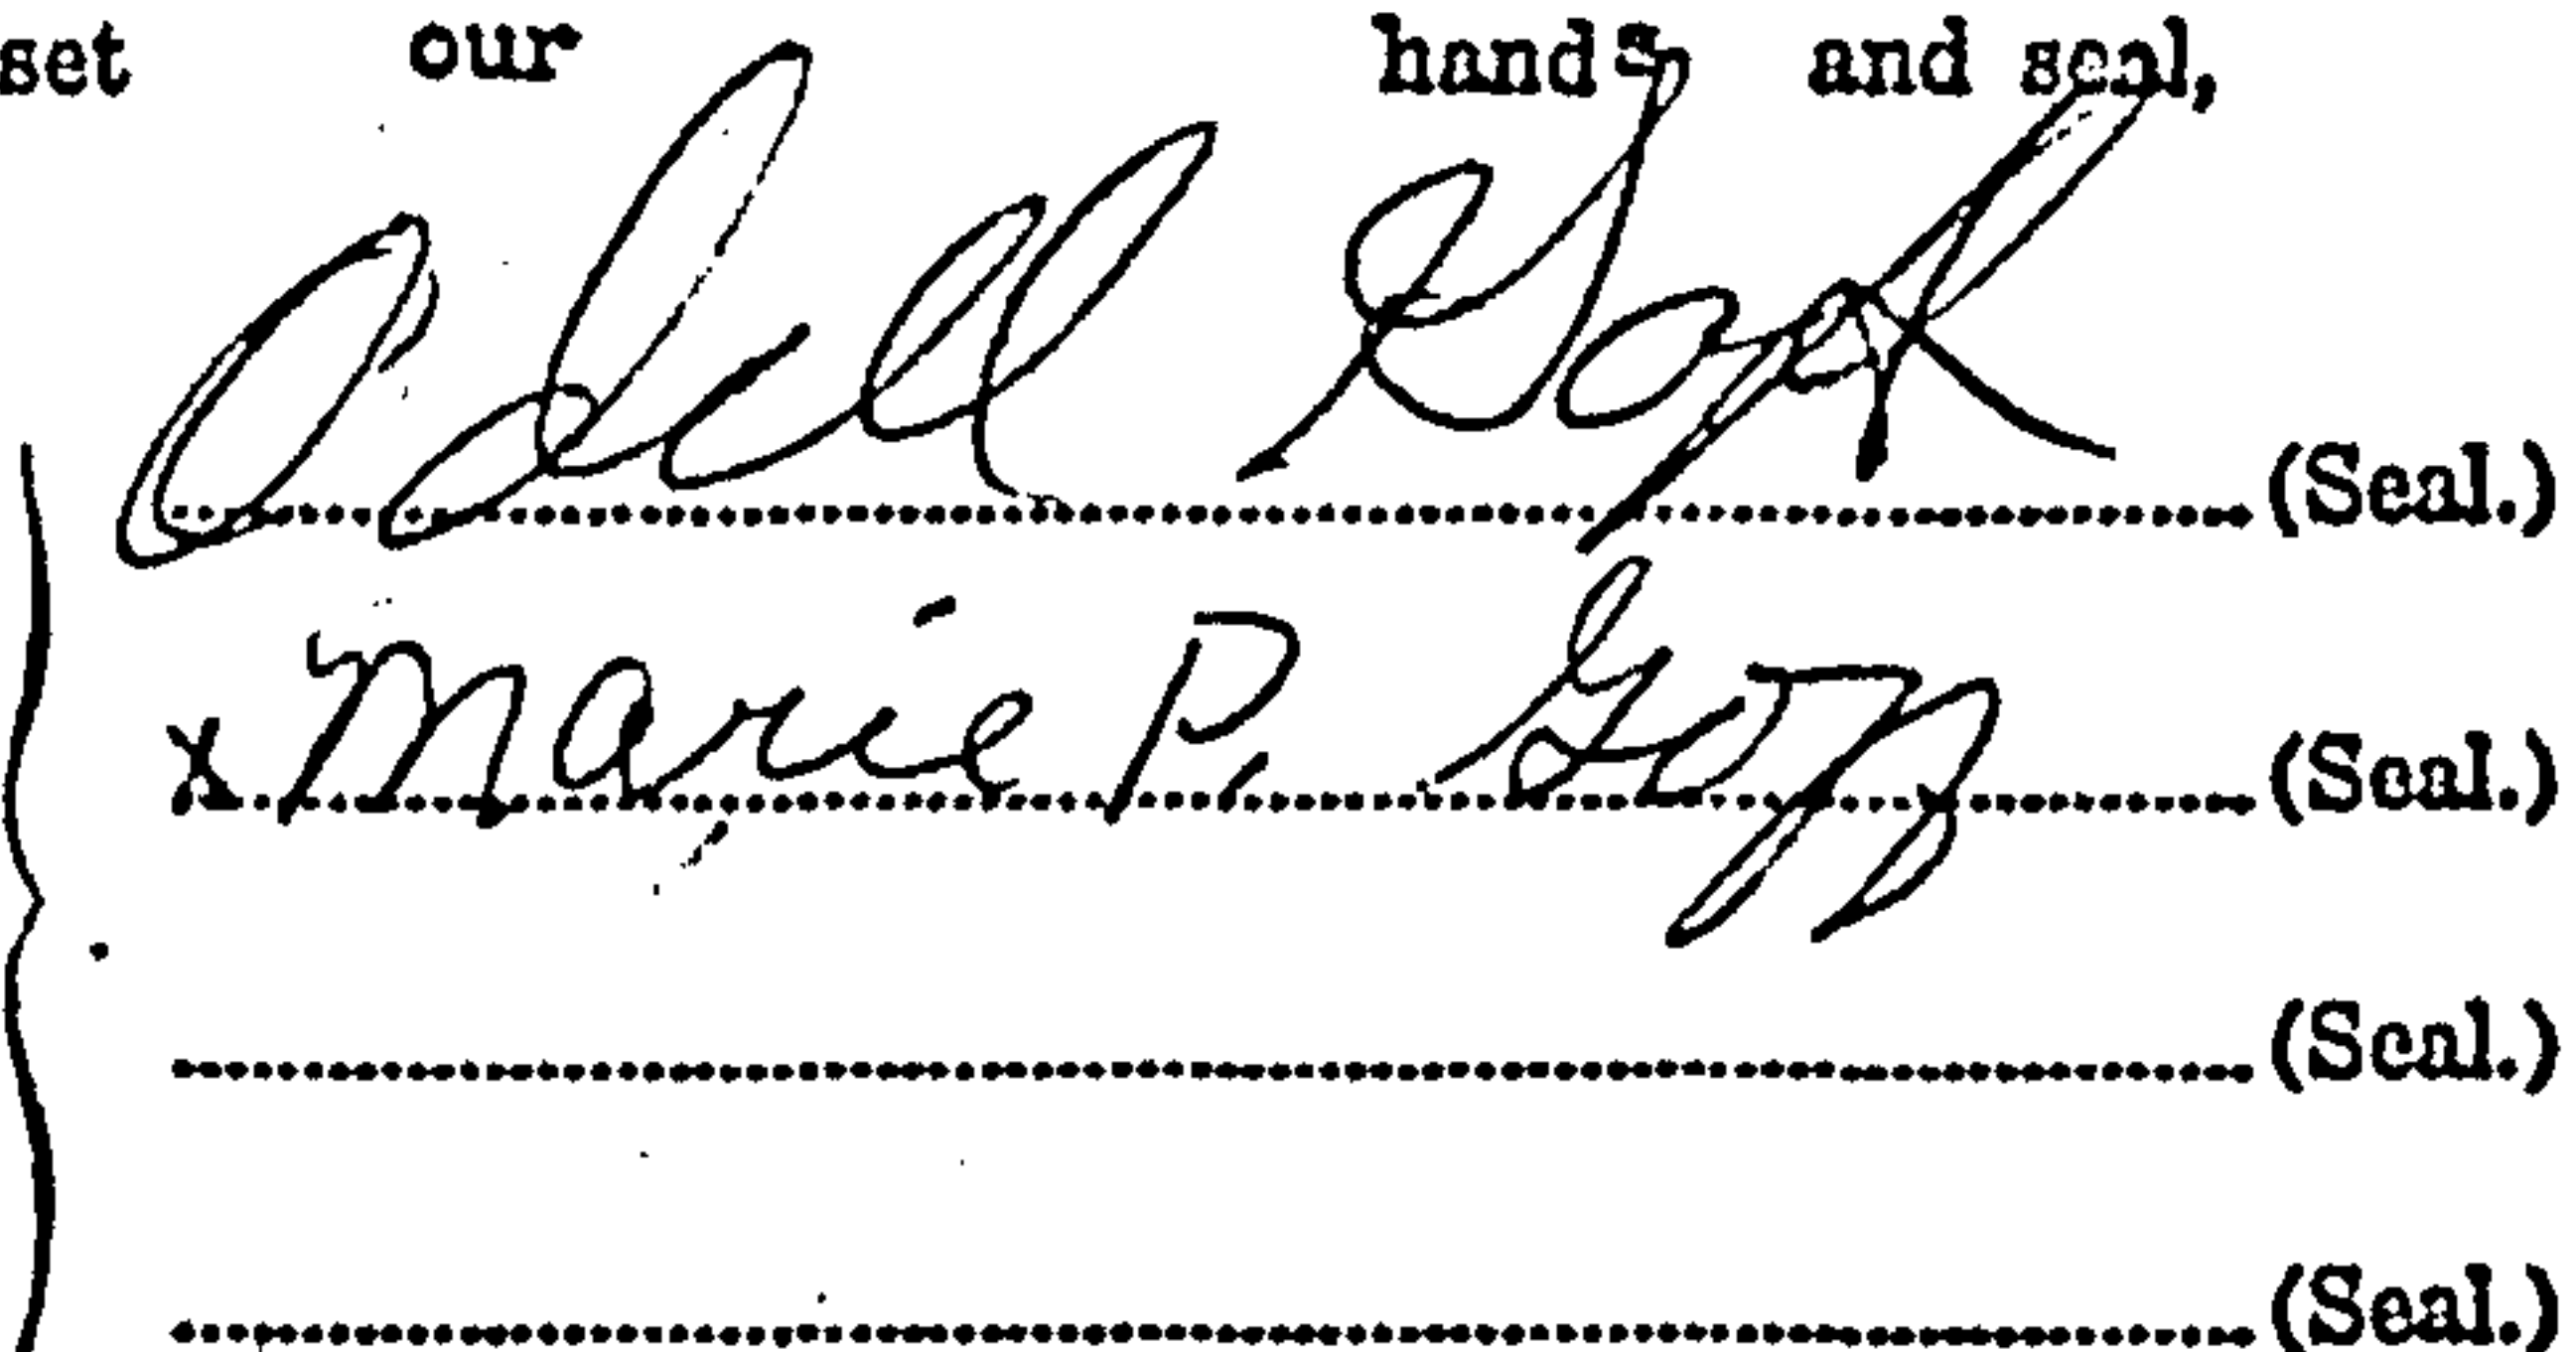 set our hands and seal,
Odell Goff (Seal.)
x Marie P. Goff (Seal.)
(Seal.)
(Seal.)